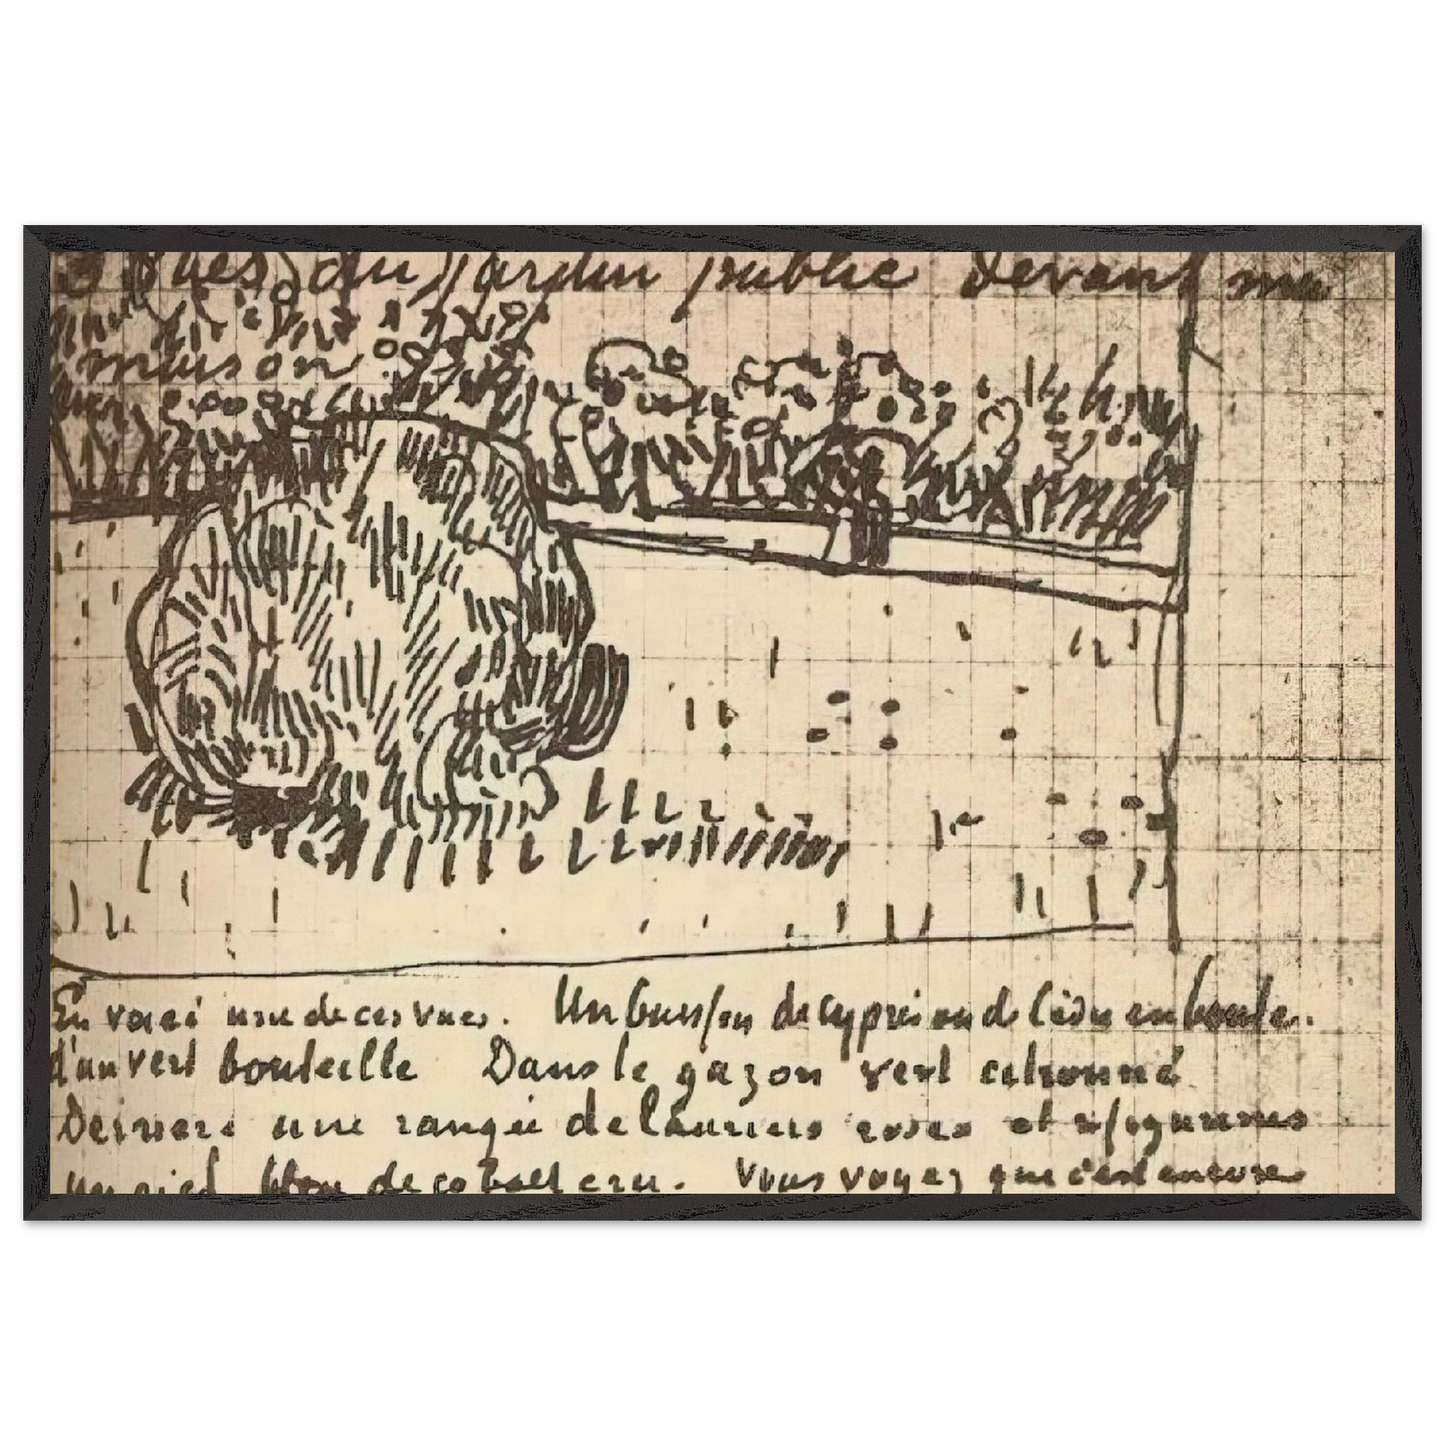 Vues du jardin public devant ma
maison
En voici une de ces vues. Un buisson de cyprès en boule.
d'un vert bouteille Dans le gazon vert citronné
Derriere une rangée de lauriers roses et
bleu de cobalt cru. Vous voyez que c'est encore